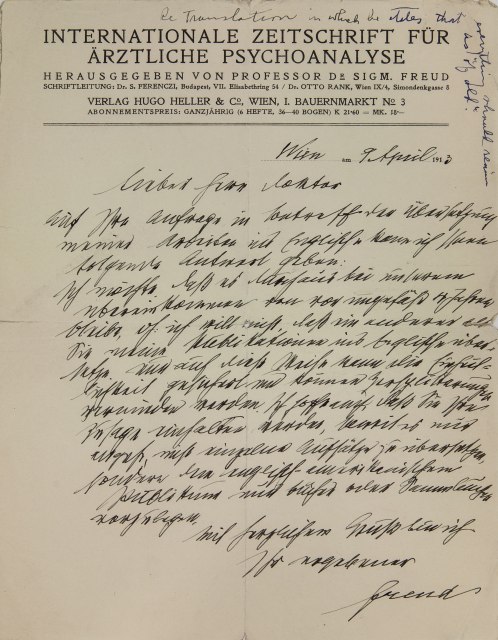 Re Translation in which he states that
everything should remain
as "of old"
INTERNATIONALE ZEITSCHRIFT FÜR
ÄRZTLICHE PSYCHOANALYSE
HERAUSGEGEBEN VON PROFESSOR DR SIGM. FREUD
SCHRIFTLEITUNG: Dr. S. FERENCZI, Budapest, VII. Elisabethring 54 / Dr. OTTO RANK, Wien IX/4, Simondenkgasse 8
VERLAG HUGO HELLER & Co, WIEN, I. BAUERNMARKT No 3
ABONNEMENTSPREIS: GANZJÄHRIG (6 HEFTE, 36—40 BOGEN) K 21·60 = MK. 18·—
Wien am 9 April 1913
Lieber Herr Doktor
Auf Ihre Anfrage in betreff der Übersetzung
meiner Arbeiten ins Englische kann ich Ihnen
folgende Antwort geben:
Ich möchte, daß es durchaus bei unserem
Übereinkommen von vor ungefähr
bleibe, ich will nicht, daß ein anderer als
Sie meine Publikationen ins Englische über
setze, nur auf diese Weise kann die Einheit-
lichkeit gesichert und können
vermieden werden. Ich hoffe auch daß Sie Ihre
Zusage einhalten werden,
nicht einzelne Aufsätze zu übersetzen,
sondern dem englisch amerikanischen
Publikum nur Bücher oder Sammlungen
vorzulegen.
Mit herzlichem Gruß bin ich
Ihr ergebener
Freud